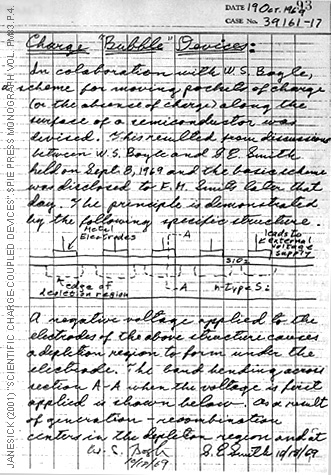 93
DATE 19 Oct. 1969
CASE No. 39161-17
Charge "Bubble" Devices:
In colaboration with W.S. Boyle,
scheme for moving pockets of charge
(or the absence of charge) along the
surface of a semiconductor was
devised. This resulted from discussions
between W.S. Boyle and G E. Smith
held on Sept. 8, 1969 and the basic scheme
was disclosed to F.M. Smits later that
day. The principle is demonstrated
by the following specific structure.
Metal
Electrodes
A
leads to
external
voltage
supply
SiO2
edge of
depletion region
A
n-type Si
A negative voltage applied to the
electrodes of the above structure causes
a depletion region to form under the
electrode. The band bending across
section A-A when the voltage is first
applied is shown below. As a result
of generation - recombination
centers in the depletion region and at
W. S. Boyle
10/19/69
G.E. Smith 10/18/69
JANESICK (2001) "SCIENTIFIC CHARGE-COUPLED DEVICES" SPIE PRESS MONOGRAPH VOL. PM83 P.4.